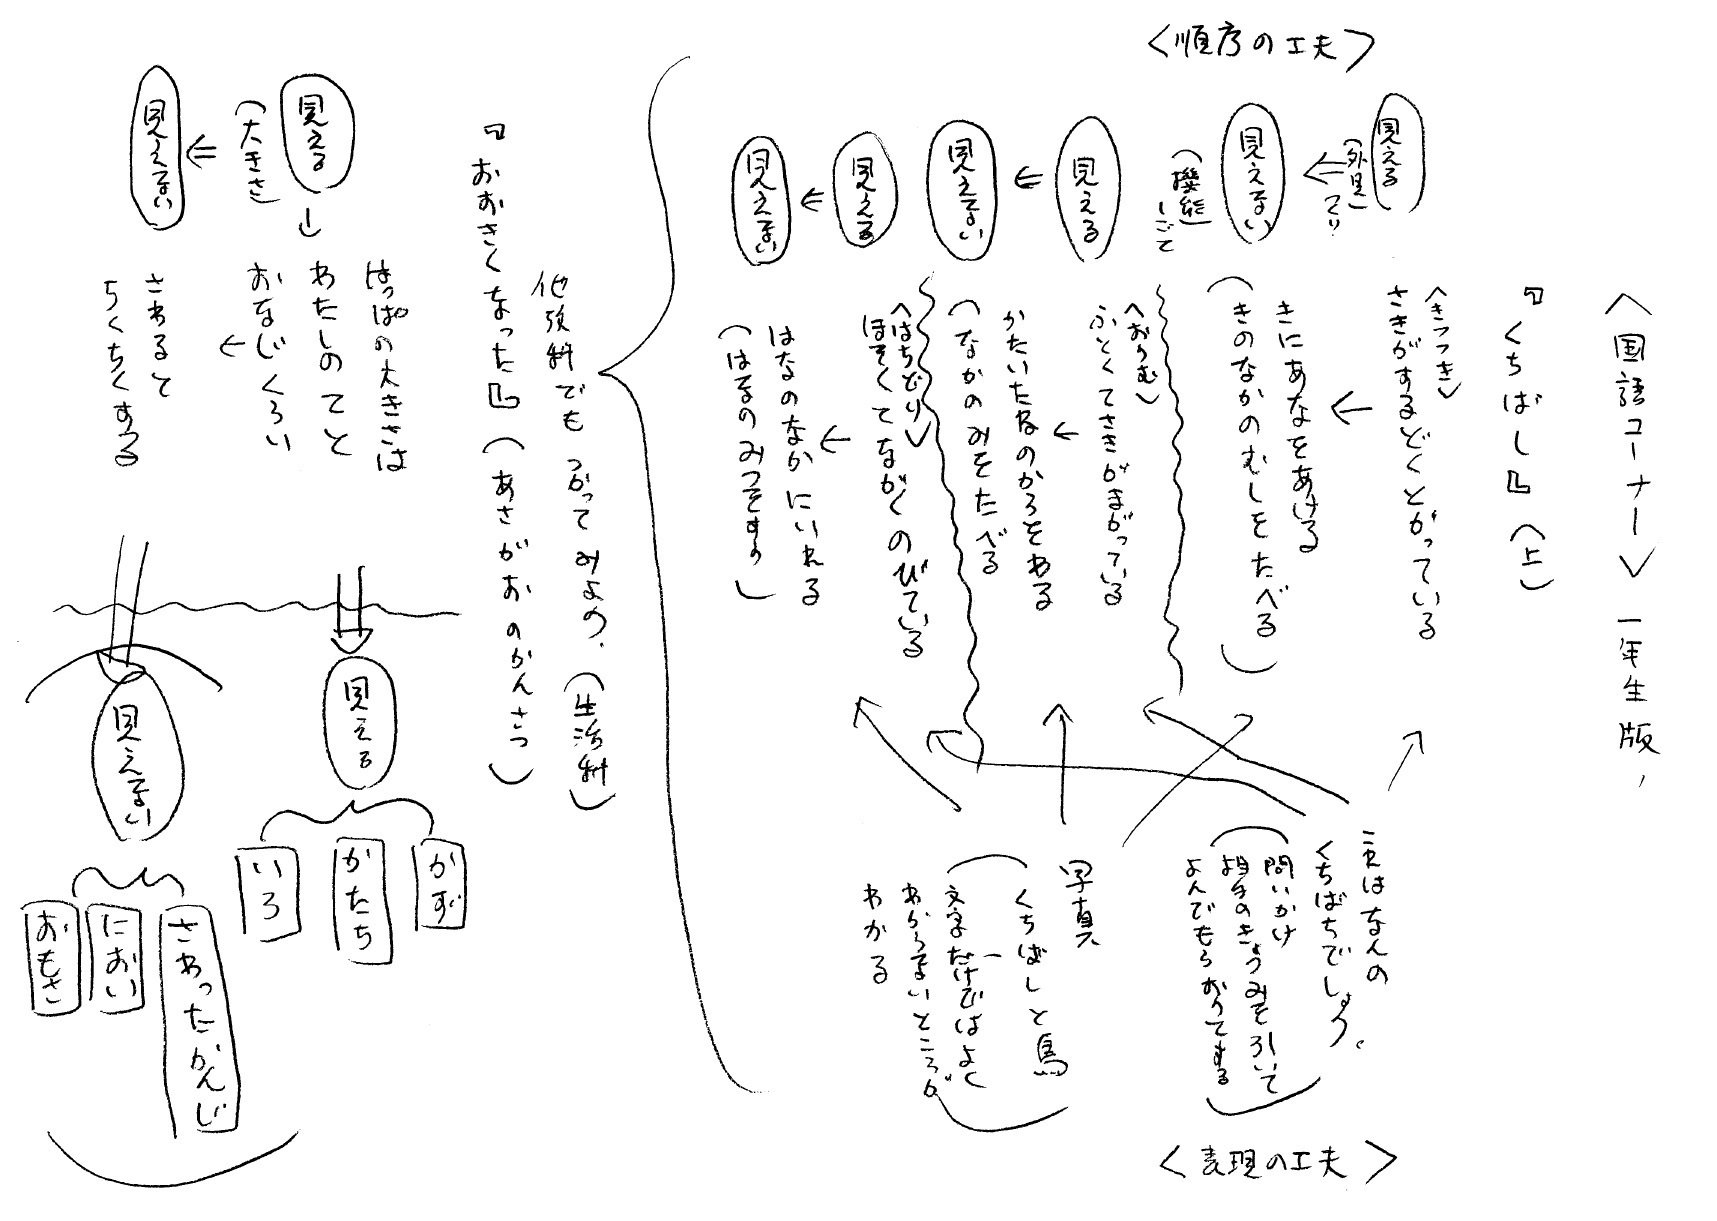 〈国語コーナー〉一年生版
〈順序の工夫〉
『くちばし』(上)
見える
(外見)
つくり
見えない
(機能)
しごと
見える
見えない
見える
見えない
〈きつつき〉
さきがするどくとがっている
きにあなをあける
(きのなかのむしをたべる)
〈おうむ〉
ふとくてさきがまがっている
かたいたねのからをわる
(なかのみをたべる
〈はちどり〉
ほそくてながくのびている
はなのなかにいれる
(はなのみつをすう)
これはなんの
くちばちでしょう。
問いかけ
相手のきょうみを引いて
よんでもらおうとする
写真
くちばしと鳥
文字だけではよく
わからないところが
わかる
〈表現の工夫〉
他教科でもつかってみよう、(生活科)
『おおきくなった』(あさがおのかんさつ)
見える
(大きさ)
見えない
はっぱの大きさは
わたしのてと
おなじくらい
さわると
ちくちくする
見える
かず
かたち
いろ
見えない
さわったかんじ
におい
おもさ